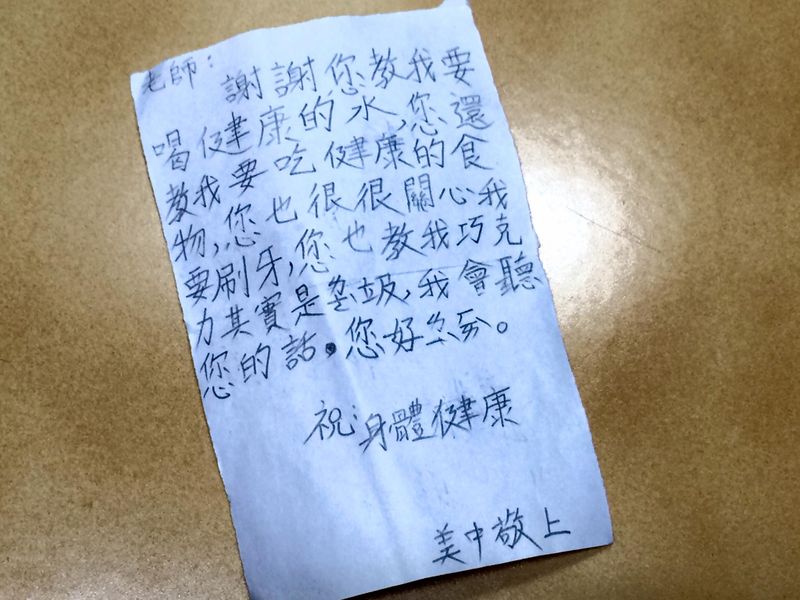 老師:
謝謝您教我要
喝健康的水,您還
教我要吃健康的食
物,您也很很關心我
要刷牙,您也教我巧克
力其實是圾,我會聽
您的話。您好。
祝:身體健康
美中敬上